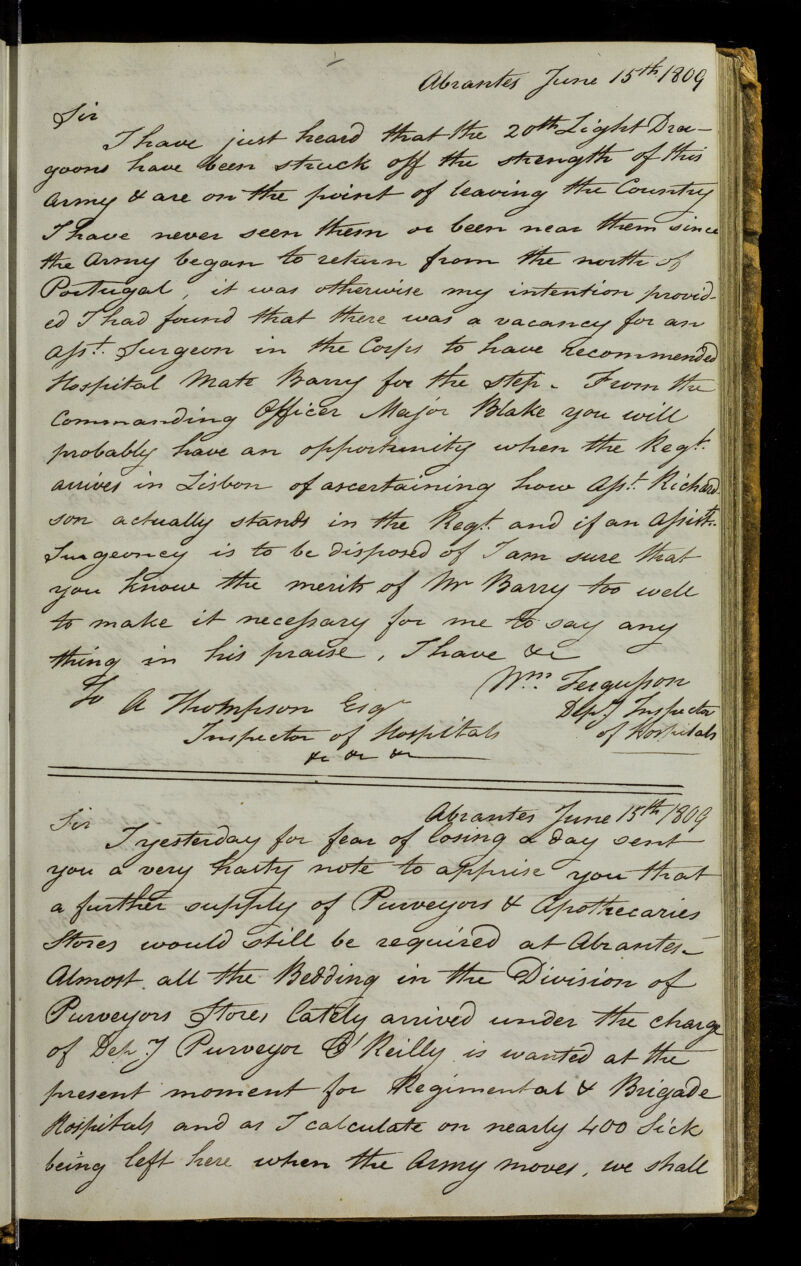 Abrantes June 15th 1809
Sir
I have just heard that the 20th Light Dra-
goons have been struck off the strength of this
Army & are on the point of leaving the Country
I have never seen them or been near them since
the Army began to return from the north of
Portugal, it was otherwise my intention provid-
ed I had found that there was a vacancy for an
Asst. Surgeon in the Corps to have recommended
Hospital Mate Barry for the step. From the
Commanding Officer Major Blake you will
probably have an opportunity when the Regt.
arrives in Lisbon of ascertaining how Asst. Richard
son actually stands in the Regt. and if an Assistt.
Surgeoncy is to be disposed of I am sure that
you know the merits of Mr Barry too well
to make it necessary for me to say any
thing in his praise, I have &c
Wm. Fergusson
To A Thompson Esqr Depy Inspector
Inspector of Hospitals of Hospitals
&c &c &c
Abrantes June 15th 1809
Sir
I yesterday for fear of losing a day sent
you a very hasty note to apprise you that
a further supply of Purveyors & Apothecaries
Stores would still be required at Abrantes_
Almost all the Bedding in the Division of
Purveyors Stores lately arrived under the charge
of Depy Purveyor O'Reilly is wanted at the
present moment for Regimental & Brigade
Hospitals and as I calculate on nearly 400 Sick
being left here when the Army moves, we shall